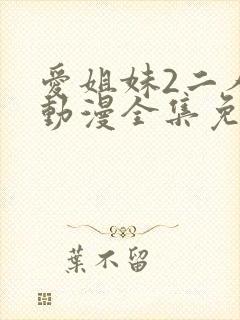 愛姐妹2二人
動漫全集免
葉不留